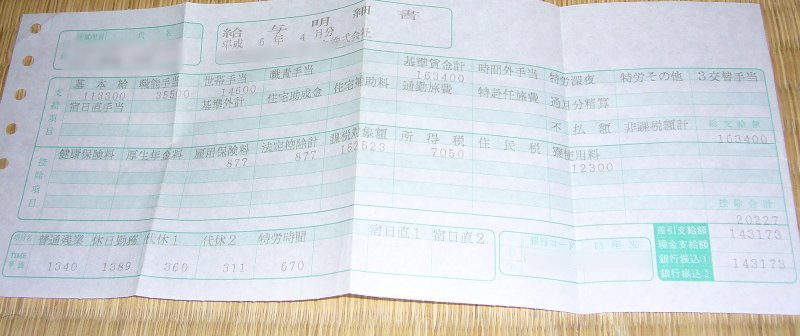 給与明細書
平成 6年 4月分
株式会社
氏名
支給項目
基本給 職能手当 世帯手当 職責手当 基準賃金計 時間外手当 特労深夜 特労その他 3交替手当
113300 35500 14600 163400
宿日直手当 基準外計 住宅助成金 住宅補助料 通勤旅費 特赴任旅費 過月分精算
不払額 非課税額計 総支給額
163400
控除項目
健康保険料 厚生年金料 雇用保険料 法定控除計 課税対象額 所得税 住民税 寮使用料
877 877 162523 7050 12300
控除合計
20227
項目名 普通残業 休日勤務 代休1 代休2 特労時間 宿日直1 宿日直2
TIME単価 1340 1389 360 311 670
銀行コード 口座
差引支給額 143173
現金支給額
銀行振込1 143173
銀行振込2